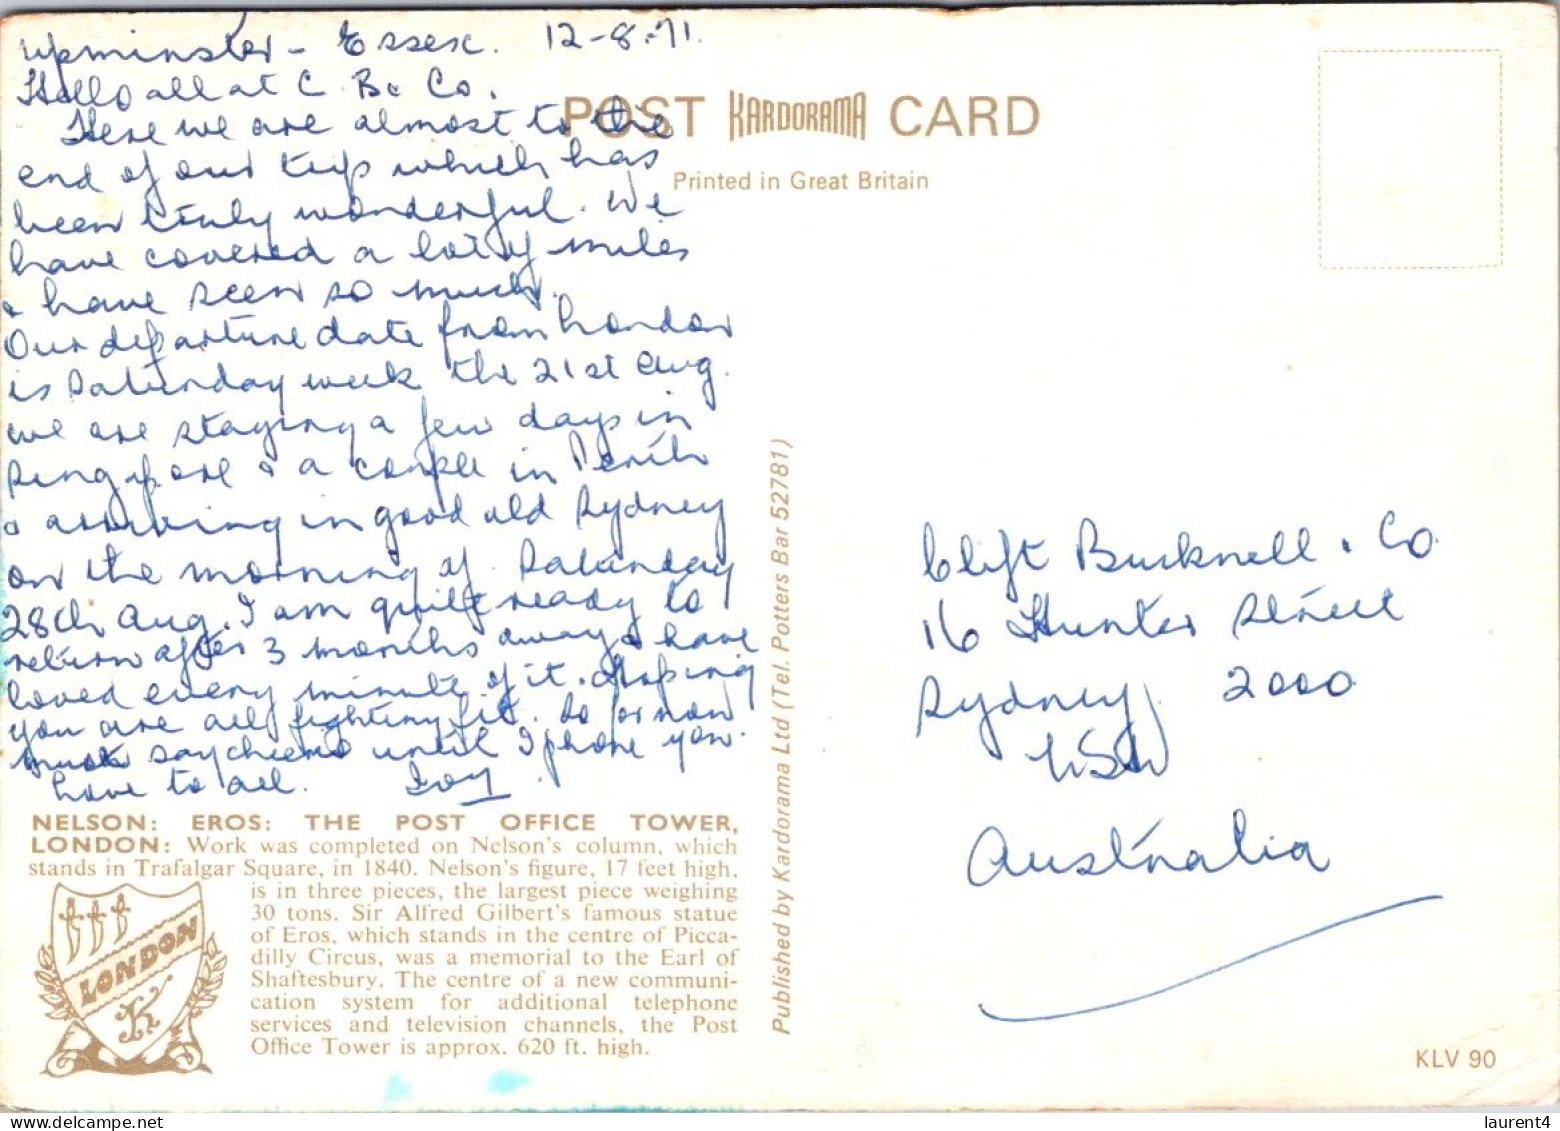 Upminster - Essex. 12-8-71.
Hello all at C. B. & Co.
Here we are almost to the
end of our trip which has
been truly wonderful. We
have covered a lot of miles
& have seen so much.
Our departure date from London
is Saturday week the 21st Aug.
we are staying a few days in
Singapore & a couple in Perth
& arriving in good old Sydney
on the morning of Saturday
28th Aug. I am quite ready to
return after 3 months away & have
loved every minute of it. Hoping
you are all fighting fit. So for now
must say cheerio until I phone you.
Love to all. Joy
POST KARDORAMA CARD
Printed in Great Britain
Clift Bucknell & Co
16 Hunter Street
Sydney 2000
NSW
Australia
Published by Kardorama Ltd (Tel. Potters Bar 52781)
NELSON: EROS: THE POST OFFICE TOWER,
LONDON: Work was completed on Nelson's column, which
stands in Trafalgar Square, in 1840. Nelson's figure, 17 feet high,
is in three pieces, the largest piece weighing
30 tons. Sir Alfred Gilbert's famous statue
of Eros, which stands in the centre of Picca-
dilly Circus, was a memorial to the Earl of
Shaftesbury. The centre of a new communi-
cation system for additional telephone
services and television channels, the Post
Office Tower is approx. 620 ft. high.
LONDON
K
KLV 90
www.delcampe.net
laurent4